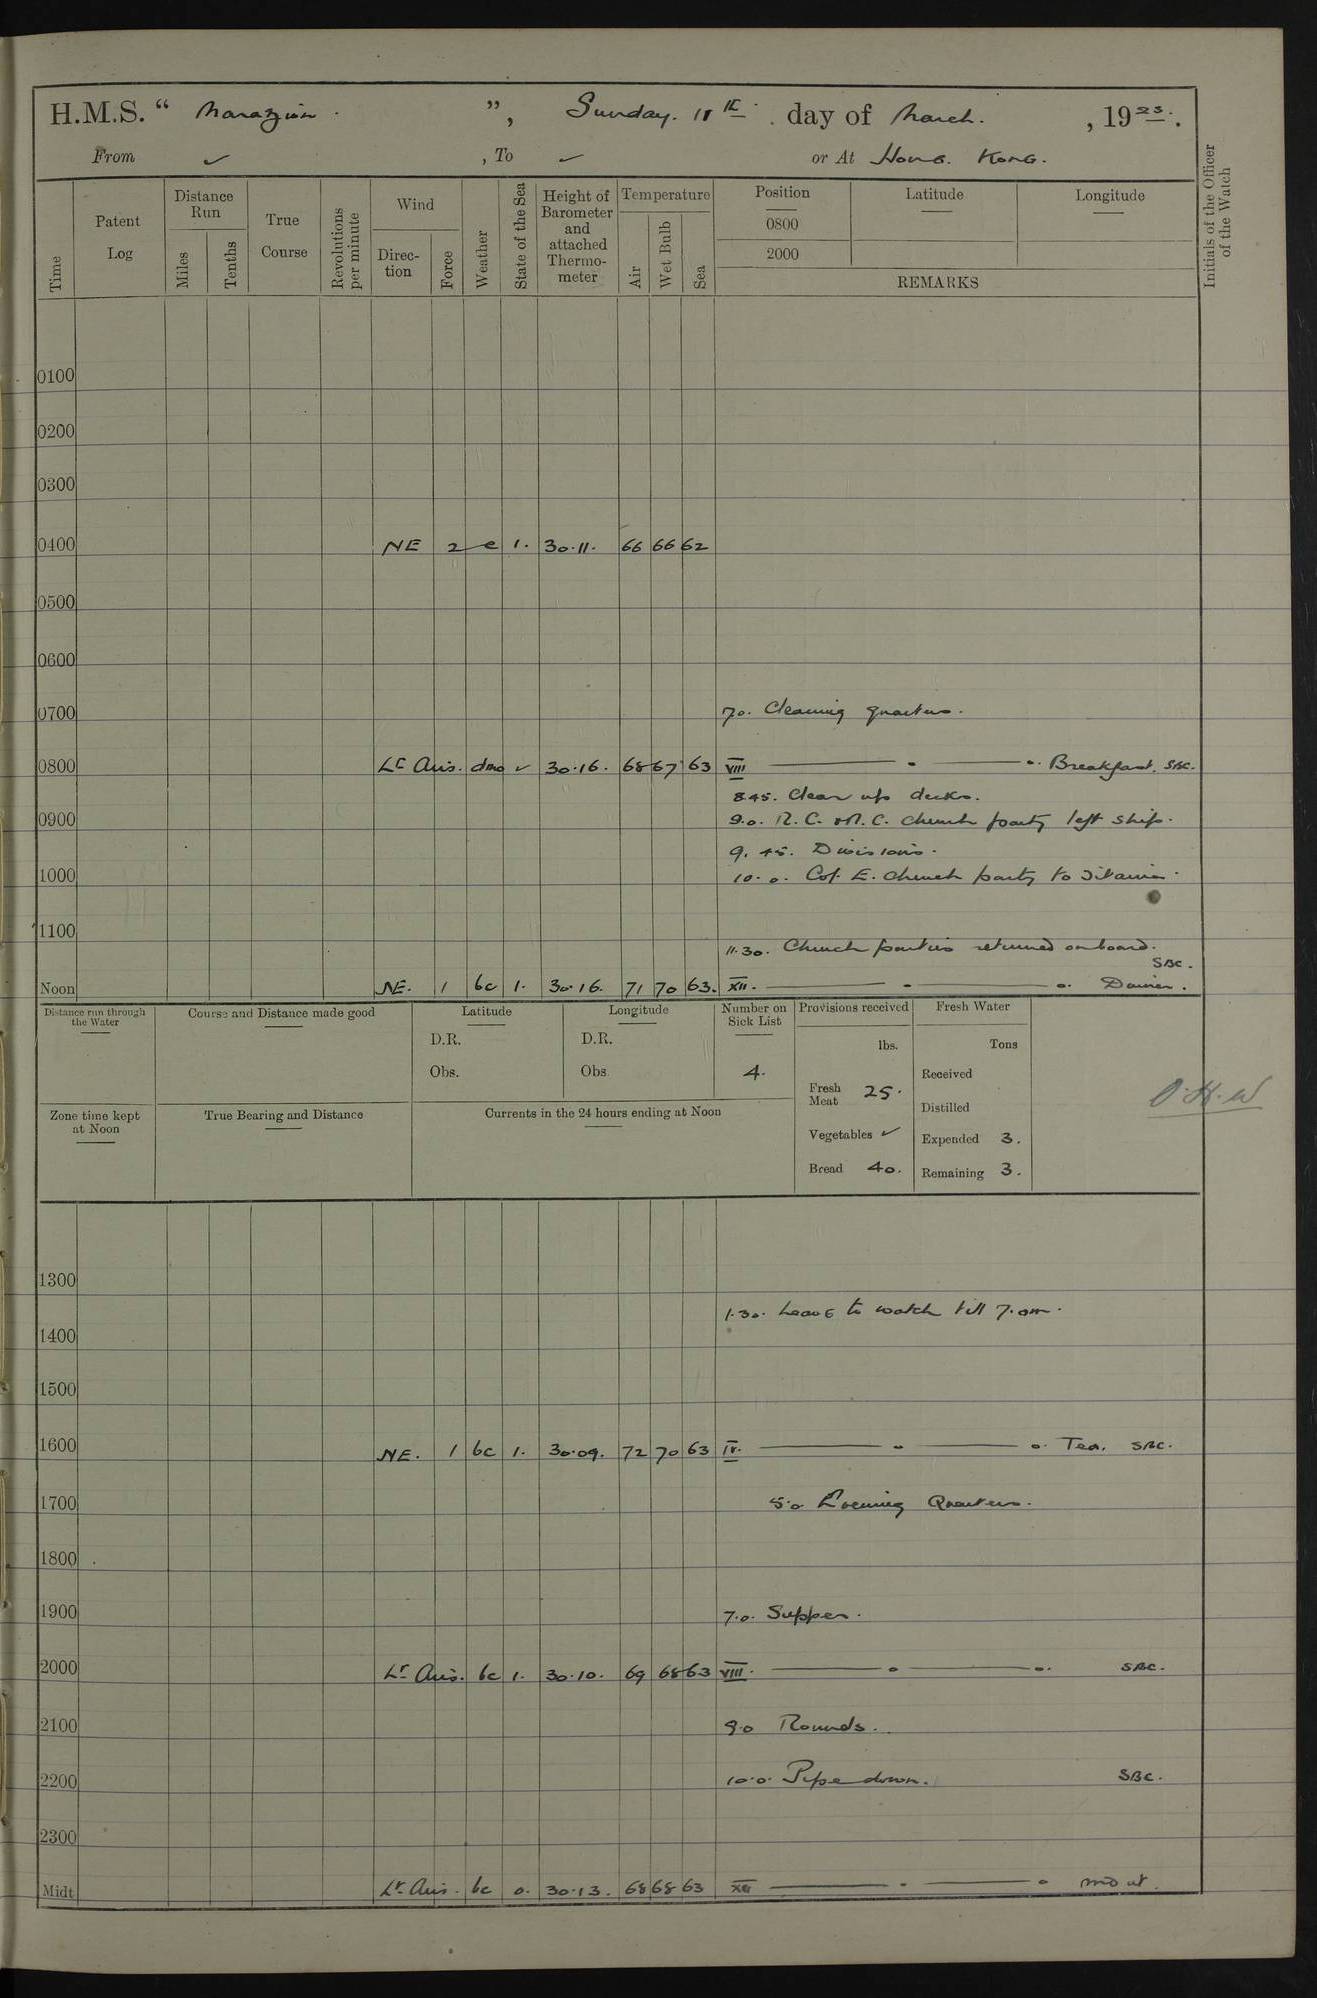 H.M.S. " Marazion. ", Sunday. 11th. day of March. , 1923.
From ✓ , To ✓ or At Hong. Kong.
Time
Patent Log
Distance Run
Miles
Tenths
True Course
Revolutions per minute
Wind
Direction
Force
Weather
State of the Sea
Height of Barometer and attached Thermometer
Temperature
Air
Wet Bulb
Sea
Position Latitude Longitude
0800
2000
REMARKS
Initials of the Officer of the Watch
0100
0200
0300
0400 NE 2 c 1. 30.11. 66 66 62
0500
0600
0700 7.0. Cleaning quarters.
0800 Lt Airs. dmo ✓ 30.16. 68 67 63 VIII Breakfast. SBC.
8.45. Clear up decks.
0900 9.0. R.C. & N.C. church party left ship.
9.45. Divisions.
1000 10.0. C of E. church party to Titania.
1100
11.30. Church parties returned onboard.
SBC.
Noon NE. 1 bc 1. 30.16. 71 70 63. XII. Dinner.
Distance run through the Water
Course and Distance made good
Latitude
D.R.
Obs.
Longitude
D.R.
Obs.
Number on Sick List
4.
Provisions received
lbs.
Fresh Meat 25.
Vegetables ✓
Bread 40.
Fresh Water
Tons
Received
Distilled
Expended 3.
Remaining 3.
O.H.W
Zone time kept at Noon
True Bearing and Distance
Currents in the 24 hours ending at Noon
1300
1.30. Leave to watch till 7.am.
1400
1500
1600 NE. 1 bc 1. 30.09. 72 70 63 IV. Tea. SBC.
1700 5.0 Evening Quarters.
1800
1900 7.0. Supper.
2000 Lt Airs. bc 1. 30.10. 69 68 63 VIII. SBC.
2100 9.0 Rounds.
2200 10.0. Pipe down. SBC.
2300
Midt Lt Airs. bc 0. 30.13. 68 68 63 XII